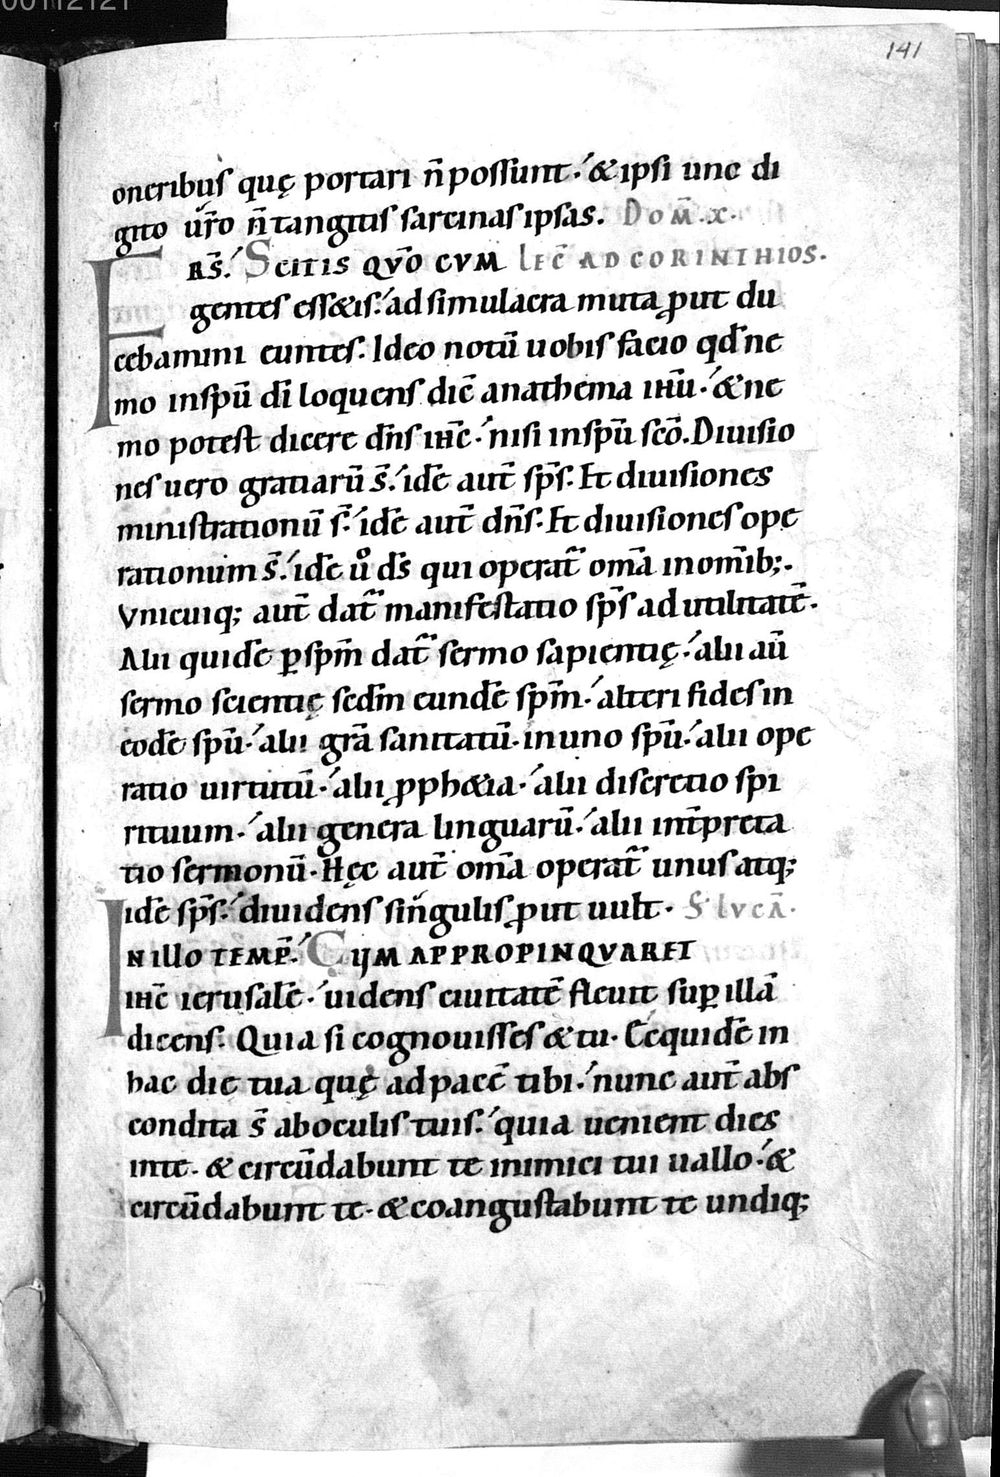 00112121
141
oneribus quę portari n̄ possunt. & ipsi uno di
gito ur̄o n̄ tangitis sarcinas ipsas. DOM̄. X.
FRS̄. SCITIS QVO CVM LEC̄ AD CORINTHIOS.
gentes ess&is. ad simulacra muta ꝓut du
cebamini euntes. Ideo notū uobis facio qd̄ ne
mo in sp̄u dī loquens dic̄ anathema ihū. & ne
mo potest dicere dn̄s ihc̄. nisi in sp̄u scō. Diuisio
nes uero gratiarū s̄. idē aut̄ sp̄s. Et diuisiones
ministrationū s̄. idē aut̄ dn̄s. Et diuisiones ope
rationum s̄. idē uͦ ds̄ qui operat̄ om̄a in om̄ib;.
Vnicuiq; aut̄ dat̄ manifestatio sp̄s ad utilitatē.
Alii quidē ꝑ sp̄m dat̄ sermo sapientię. alii au̅
sermo scientię scdm̄ eundē sp̄m. alteri fides in
eodē sp̄u. alii gr̄a sanitatū. in uno sp̄u. alii ope
ratio uirtutū. alii ꝓph&ia. alii discretio spi
rituum. alii genera linguarū. alii int̄preta
tio sermonū. Hęc aut̄ om̄a operat̄ unus atq;
idē sp̄s. diuidens singulis ꝓut uult. S' LVCĀ.
IN ILLO TEMP̄. CUM APPROPINQVARET
ihc̄ ierusalē. uidens ciuitatē fleuit suꝑ illā
dicens. Quia si cognouisses & tu. Et quidē in
hac die tua quę ad pacē tibi. nunc aut̄ abs
condita s̄ ab oculis tuis. quia uenient dies
in te. & circūdabunt te inimici tui uallo. &
circūdabunt te. & coangustabunt te undiq;